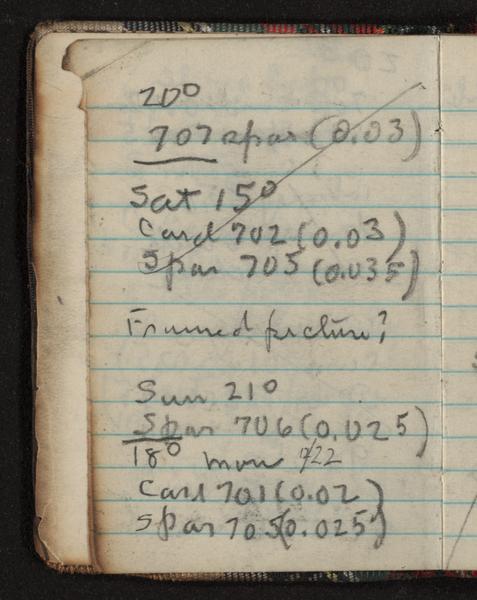 20°
707 spar (0.03)
Sat 15°
Card 702 (0.03)
Spar 705 (0.035)
Framed picture?
Sun 21°
Spar 706 (0.025)
18° mon 9/22
Card 701 (0.02)
Spar 705 (0.025)